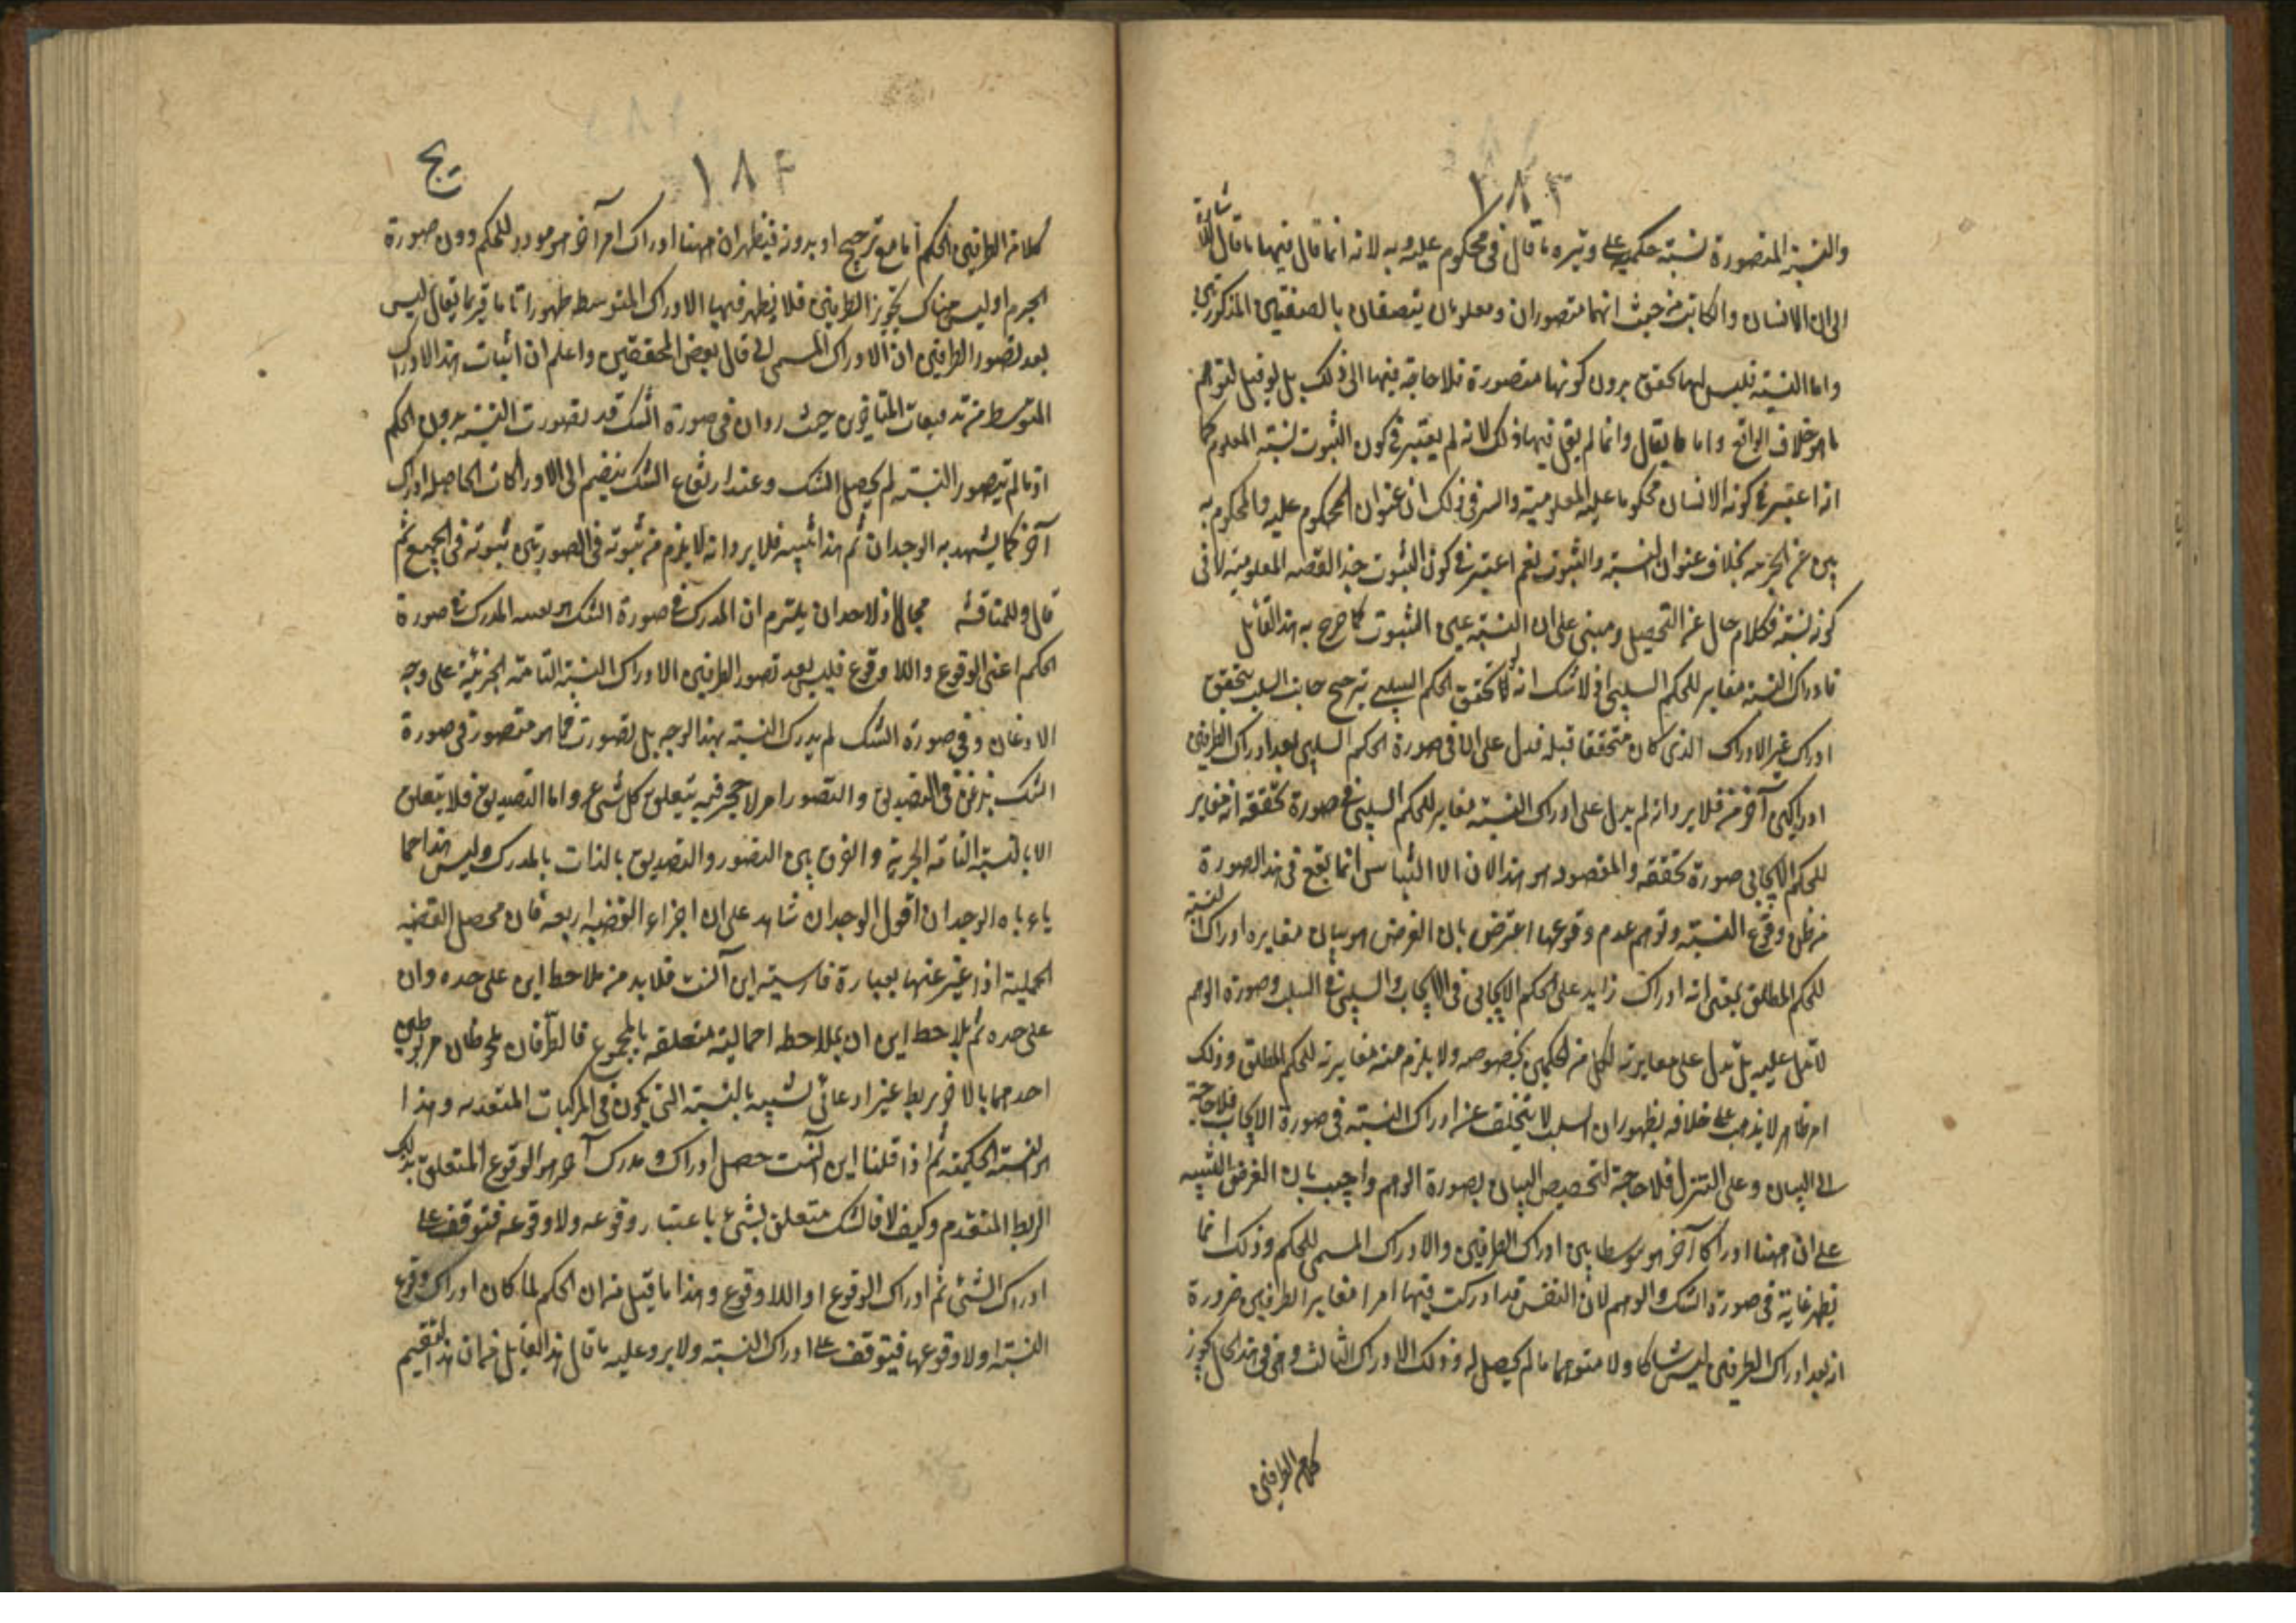 ١٨٣
والنسبة المتصورة نسبة حكمية على وتيرة ما قال في محكوم عليه وبه لانه انما قال فيهما ما قال اشارة
الى ان الانسان والكاتب من حيث انهما متصوران ومعلومان يتصفان بالصفتين المذكورتين
واما النسبة فليس لها تحقق بدون كونها متصورة فلا حاجة فيها الى ذلك بل لو قيل لتوهم
ما هو خلاف الواقع واما ما يقال وانما لم يقل فيها ذلك لانه لم يعتبر في كون الثبوت نسبة المعلوم كما
انه اعتبر في كونه الانسان محكوما عليه المعلومية والسر في ذلك ان عنوان المحكوم عليه والمحكوم به
عن الجزء بخلاف عنوان النسبة والثبوت نعم اعتبر في كون الثبوت جزء القضية المعلومية لا في
كونه نسبة فكلام خال عن التحصيل ومبني على ان النسبة عين الثبوت كما صرح به هذا القائل
فادراك النسبة مغاير للحكم السلبي اذ لا شك انه كما تحقق الحكم السلبي بترجيح جانب السلب يتحقق
ادراك غير الادراك الذي كان متحققا قبله فدل على ان في صورة الحكم السلبي بعد ادراك الطرفين
ادراكين آخرين فلا يرد انه لم يدل على ادراك النسبة مغاير للحكم السلبي في صورة تحققه انه مغاير
للحكم الايجابي صورة تحققه والمقصود هو هذا لان الالتباس انما يقع في هذه الصورة
من ظن وقوع النسبة وتوهم عدم وقوعها اعترض بان الغرض هو بيان مغايرة ادراك النسبة
للحكم المطلق بمعنى انه ادراك زايد على الحكم الايجابي في الايجاب والسلبي في السلب وصورة الوهم
لا تدل عليه بل تدل على مغايرته لكل من الحكمين بخصوصه ولا يلزم منه مغايرته للحكم المطلق وذلك
امر ظاهر لا يذهب على خلافه بظهور ان السلب لا يتخلف عن ادراك النسبة في صورة الايجاب فلا حاجة
الى البيان وعلى التنزل فلا حاجة لتخصيص البيان بصورة الوهم واجيب بان الغرض التنبيه
على ان ههنا ادراكا آخر هو متوسطا بين ادراك الطرفين والادراك المسمى للحكم وذلك انما
يظهر غاية في صورة الشك والوهم لان النفس قد ادركت فيها امرا مغاير الطرفين ضرورة
انه بعد ادراك الطرفين ليس شاكا ولا متوهما ما لم يحصل له وذلك الادراك الثالث وهي في هذا الحال تجوز
كلا من الطرفين
١٨٤
يج
كلا من الطرفين الحكم اما مع ترجيح او بدونه فيظهر ان ههنا ادراك امر آخر هو مورد للحكم دون صورة
الجزم اذ ليس هناك تجويز الطرفين فلا يظهر فيها الادراك المتوسط ظهورا تاما فربما يقال ليس
بعد تصور الطرفين ان الادراك المسمى الى قال بعض المحققين واعلم ان اثبات هذا الادراك
المتوسط من تدقيقات المتاخرين حيث رأوا ان في صورة الشك قد تصورت النسبة بدون الحكم
اذ ما لم يتصور النسبة لم يحصل الشك وعند ارتفاع الشك ينضم الى الادراكات الحاصلة ادراك
آخر كما يشهد به الوجدان ثم هذا تنبيه فلا يرد انه لا يلزم من ثبوته في الصورتين ثبوته في الجميع ثم
قال وللمناقشة مجال اذ لاحد ان يلتزم ان المدرك في صورة الشك هو بعينه المدرك في صورة
الحكم اعني الوقوع واللا وقوع فليس بعد تصور الطرفين الا ادراك النسبة التامة الخبرية على وجه
الاذعان وفي صورة الشك لم يدرك النسبة بهذا الوجه بل تصورت فما هو متصور في صورة
الشك يذعن في التصديق والتصور امر لا حجر فيه يتعلق بكل شيء واما التصديق فلا يتعلق
الا بالنسبة التامة الخبرية والفرق بين التصور والتصديق بالذات بالمدرك وليس هذا مما
ياباه الوجدان اقول الوجدان شاهد على ان اجزاء القضية اربعة فان محصل القضية
الحملية اذا عبر عنها بعبارة فارسية اين آنست فلا بد من ملاحظ اين على حده وان
على حده ثم يلاحظ اين ان بملاحظة اجمالية متعلقة بالمجموع فالطرفان ملحوظان مربوطين
احدهما بالاخر بربط غير اذعاني شبيه بالنسبة التي يكون في المركبات المتقدمة وهذا
هو النسبة الحكمية ثم اذا قلنا اين آنست حصل ادراك ومدرك آخر هو الوقوع المتعلق بذلك
الربط المتقدم وكيف لا فالشك متعلق بشيء باعتبار وقوعه ولا وقوعه فيتوقف على
ادراك الشيء ثم ادراك الوقوع او اللا وقوع وهذا ما قيل من ان الحكم لما كان ادراك وقوع
النسبة او لا وقوعها فيتوقف على ادراك النسبة ولا يرد عليه ما قال هذا القائل من ان هذا انما يتم